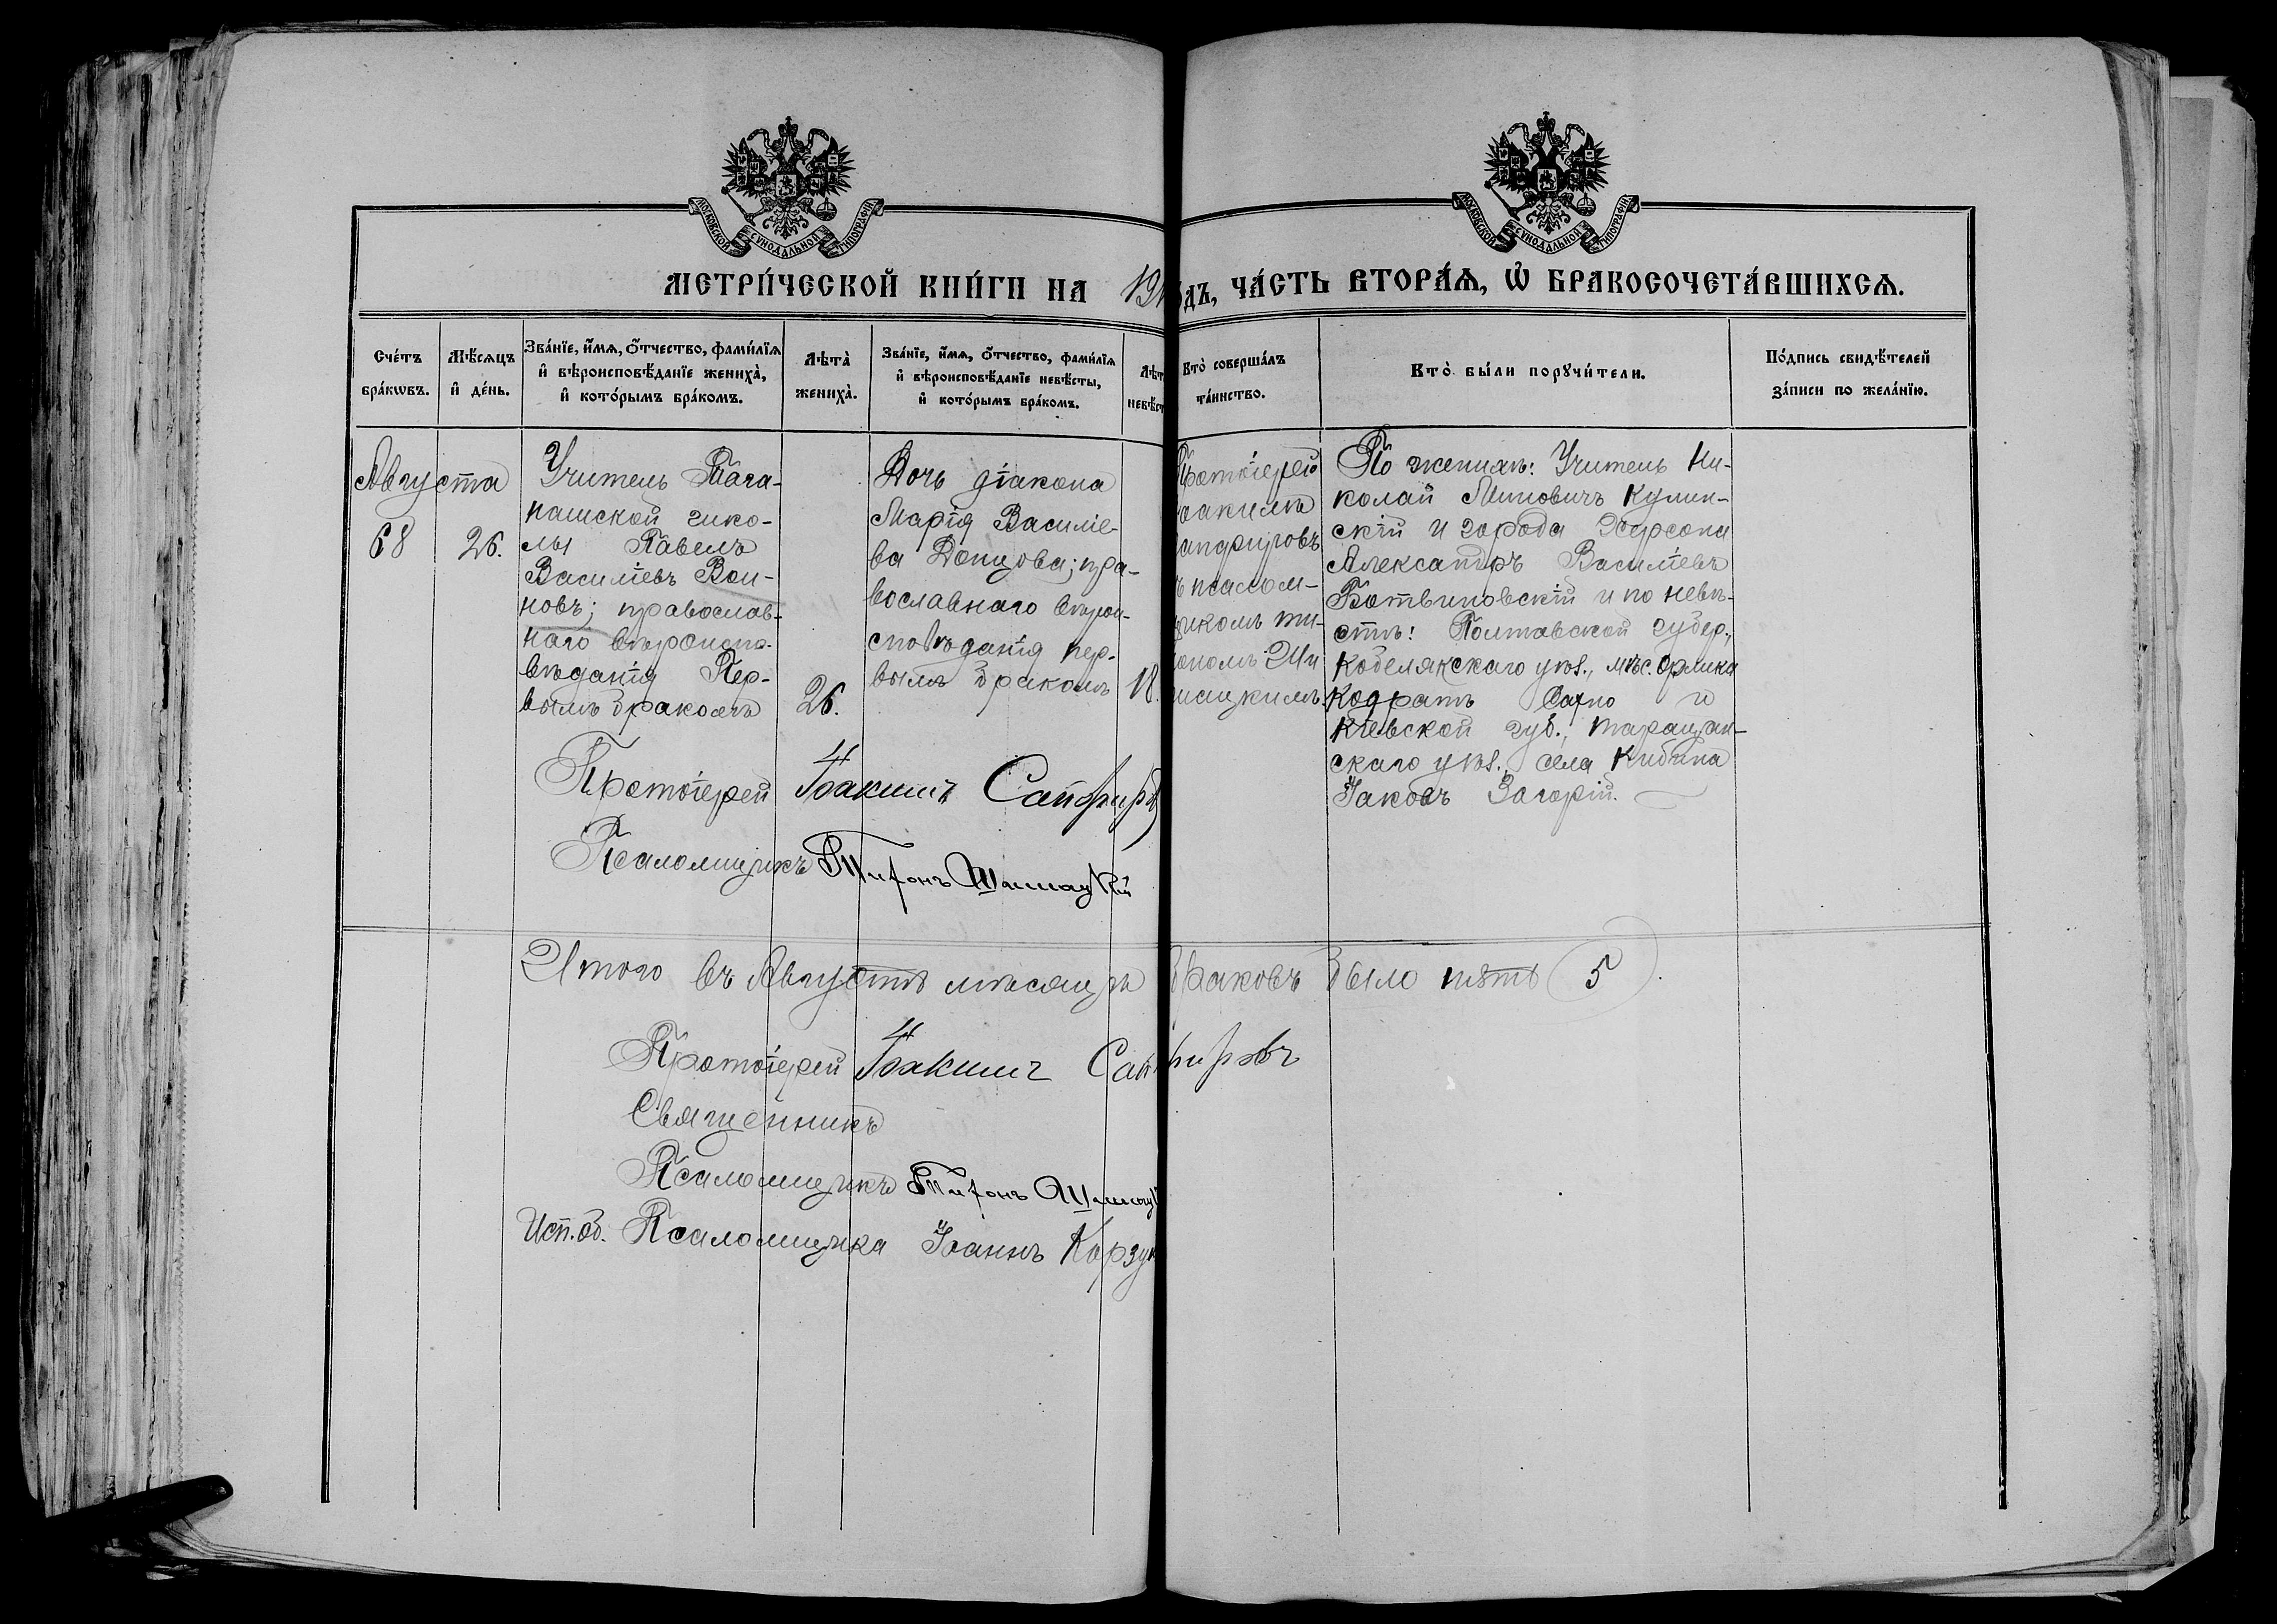 МОСКОВСКОЙ СУНОДАЛЬНОЙ ТИПОГРАФІИ
МОСКОВСКОЙ СУНОДАЛЬНОЙ ТИПОГРАФІИ
МЕТРИ́ЧЕСКОЙ КНИ́ГИ НА 191
ДЪ, ЧА́СТЬ ВТОРА́Ѧ, Ѿ БРАКОСОЧЕТА́ВШИХСѦ.
Сче́тъ бра́кѡвъ.
Мѣ́сѧцъ и҆ де́нь.
Зва́нїе, и҆́мѧ, ѻ҆́тчество, фами́лїѧ
и҆ вѣроисповѣ́данїе женихà,
и҆ кото́рымъ бра́комъ.
Лѣтà женихà.
Зва́нїе, и҆́мѧ, ѻ҆́тчество, фами́лїѧ
и҆ вѣроисповѣ́данїе невѣ́сты,
и҆ кото́рымъ бра́комъ.
Лѣт
невѣ́ст
Ктò соверша́лъ
та́инство.
Ктò бы́ли порꙋчи́тели.
По́дпись свидѣ́телей
за́писи по жела́нїю.
Августа
68
26.
Учитель Тага-
нашской шко-
лы Павелъ
Василіевъ Вои-
новъ; православ-
наго вѣроиспо-
вѣданія Пер-
вымъ бракомъ
26.
Дочь діакона
Марія Василіе-
ва Донцова; пра-
вославнаго вѣрои-
сповѣданія пер-
вымъ бракомъ
18.
Протоіерей
оакимъ
апфировъ
ъ псалом-
щикомъ Ти-
ономъ Ши
мацкимъ
По женихѣ: Учитель Ни-
колай Миновичъ Кулин-
скій и города Херсона
Александръ Василіевъ
Ботвиновскій и по невѣ-
стѣ: Полтавской губер.,
Кобелякскаго уѣз., мѣс. Орлика
Кодратъ Сахно и
Кіевской губ., Таращан-
скаго уѣз., села Кибина
Іаковъ Загорій.
Протоіерей Іоакимъ Сапфировъ
Псаломщикъ Тихонъ Шимацкій
Итого въ Августѣ мѣсяцѣ браковъ было пять 5
Протоіерей Іоакимъ Сапфировъ
Священникъ
Псаломщикъ Тихонъ Шимац
Исп. об. Псаломщика Іоаннъ Корзун